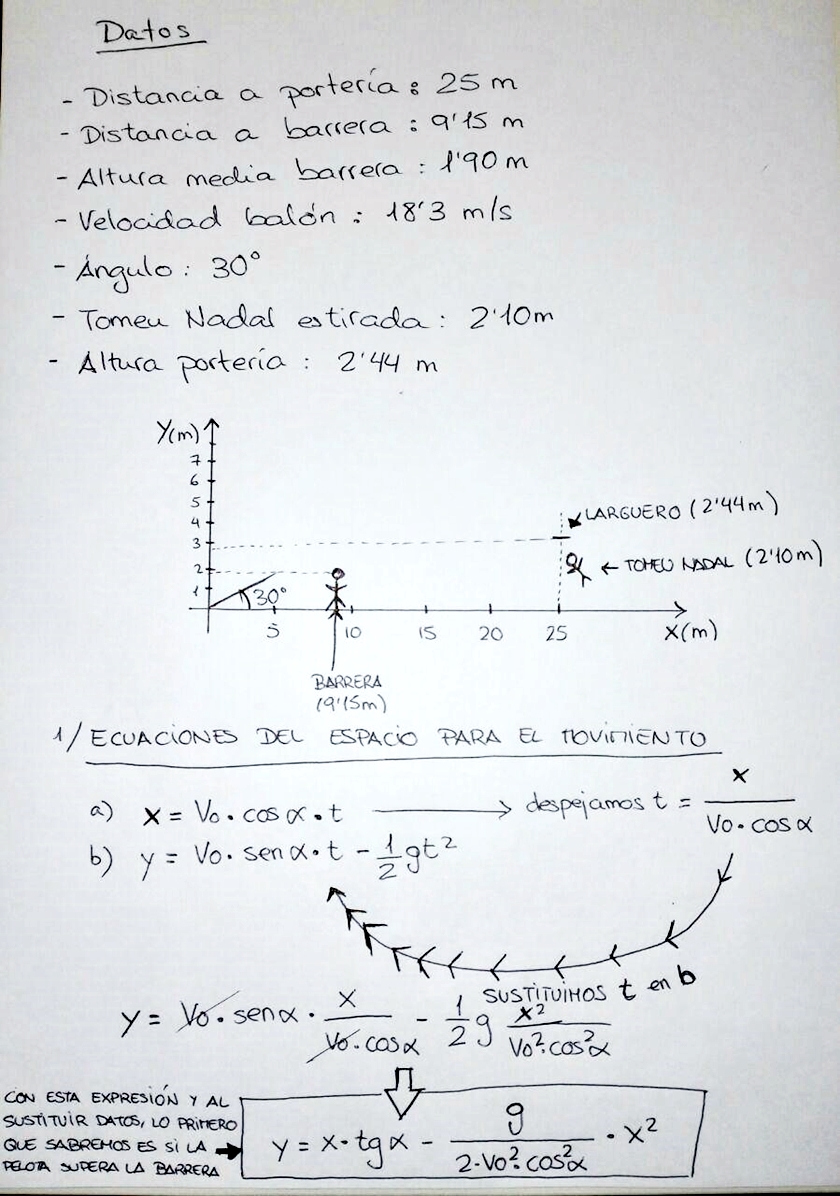 Datos
- Distancia a portería : 25 m
- Distancia a barrera : 9'15 m
- Altura media barrera : 1'90 m
- Velocidad balón : 18'3 m/s
- Ángulo : 30°
- Tomeu Nadal estirada : 2'10m
- Altura portería : 2'44 m
Y(m)
7
6
5
4
3
2
1
LARGUERO (2'44m)
← TOMEU NADAL (2'10m)
30°
5 10 15 20 25 X(m)
BARRERA
(9'15m)
1/ ECUACIONES DEL ESPACIO PARA EL MOVIMIENTO
a) x = Vo · cos α · t → despejamos t = x / (Vo · cos α)
b) y = Vo · sen α · t - 1/2 gt²
SUSTITUIMOS t en b
y = Vo · sen α · x / (Vo · cos α) - 1/2 g x² / (Vo² · cos² α)
CON ESTA EXPRESIÓN Y AL
SUSTITUIR DATOS, LO PRIMERO
QUE SABREMOS ES SI LA
PELOTA SUPERA LA BARRERA
y = x · tg α - g / (2 · Vo² · cos² α) · x²